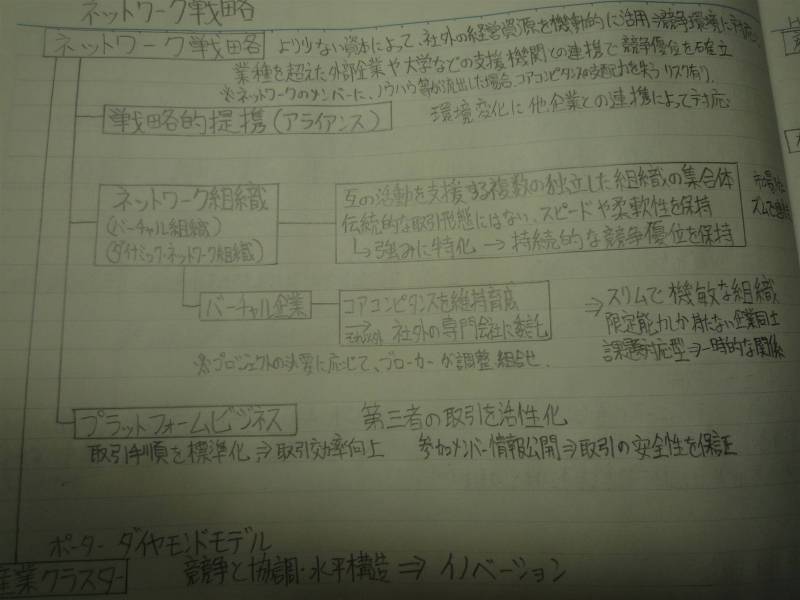 ネットワーク戦略
ネットワーク戦略 より少ない資本によって、社外の経営資源を機動的に活用⇒競争環境に対応
業種を超えた外部企業や大学などの支援機関との連携で競争優位を確立
※ネットワークのメンバーに、ノウハウ等が流出した場合、コアコンピタンスの支配力を失うリスク有り。
戦略的提携(アライアンス) 環境変化に他企業との連携によって対応
ネットワーク組織
(バーチャル組織)
(ダイナミック・ネットワーク組織)
互の活動を支援する複数の独立した組織の集合体
伝統的な取引形態にはない、スピードや柔軟性を保持
↳強みに特化 → 持続的な競争優位を保持
バーチャル企業
コアコンピタンスを維持育成
それ以外 社外の専門会社に委託
⇒スリムで機敏な組織
限定能力しか持たない企業同士
課題対応型⇒一時的な関係
※プロジェクトの必要に応じて、ブローカーが調整 組合せ.
プラットフォームビジネス 第三者の取引を活性化
取引手順を標準化⇒取引効率向上 参加メンバー情報公開⇒取引の安全性を保証
ポーター ダイヤモンドモデル
産業クラスター 競争と協調・水平構造 ⇒ イノベーション